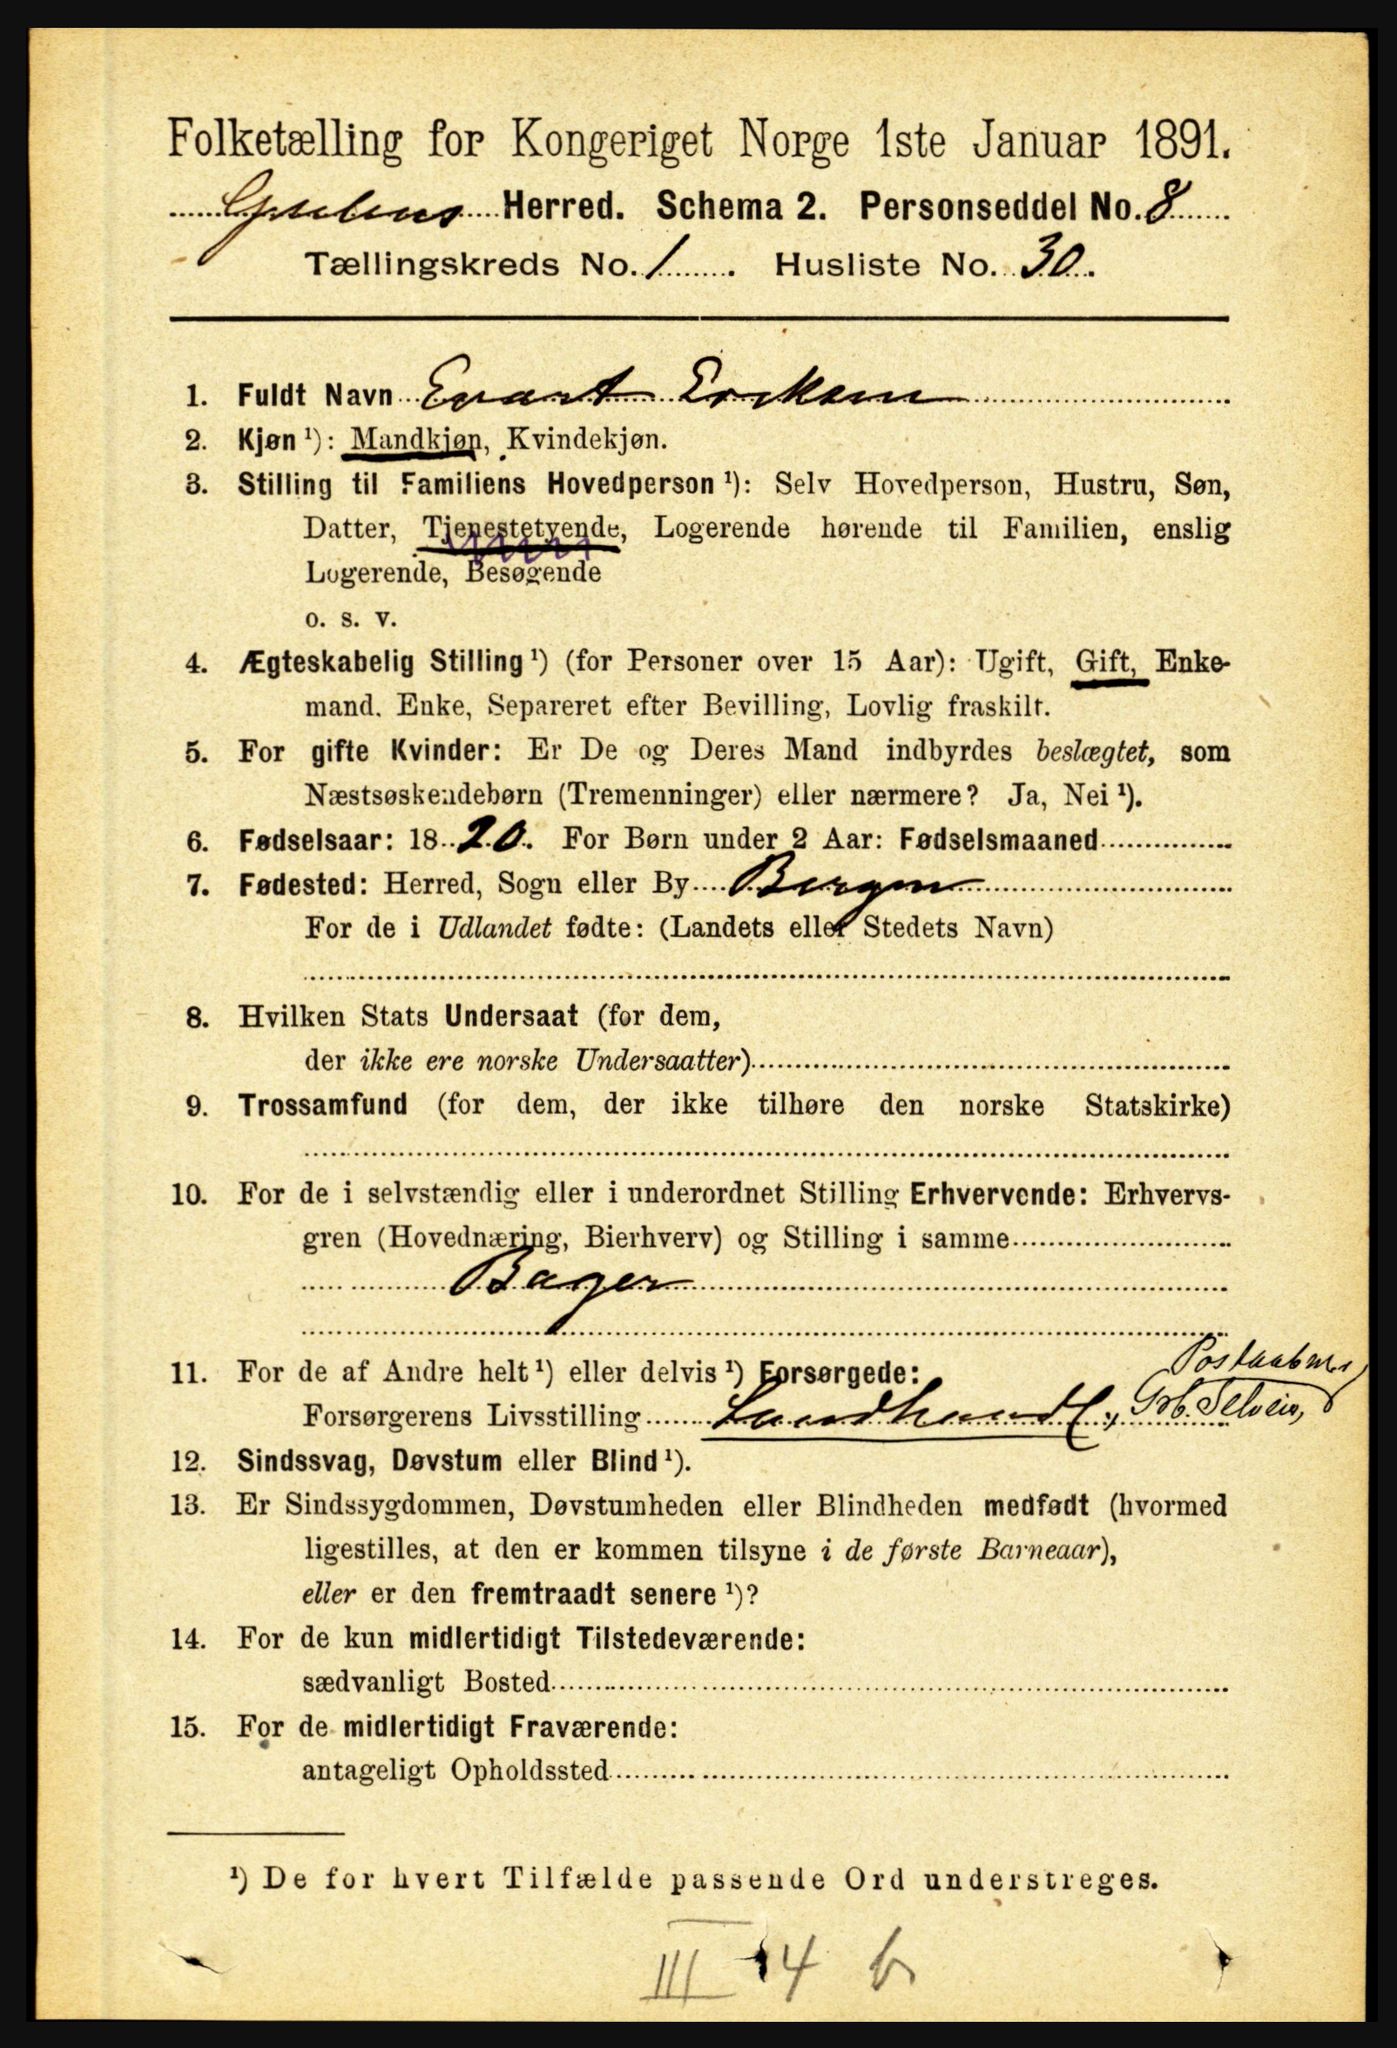 Folketælling for Kongeriget Norge 1ste Januar 1891.
Gulens Herred. Schema 2. Personseddel No. 8
Tællingskreds No. 1. Husliste No. 30.
1. Fuldt Navn Evart Eriksen
2. Kjøn ¹): Mandkjøn, Kvindekjøn.
3. Stilling til Familiens Hovedperson ¹): Selv Hovedperson, Hustru, Søn,
Datter, Tjenestetyende, Logerende hørende til Familien, enslig
Logerende, Besøgende
o. s. v.
4. Ægteskabelig Stilling ¹) (for Personer over 15 Aar): Ugift, Gift, Enke-
mand, Enke, Separeret efter Bevilling, Lovlig fraskilt.
5. For gifte Kvinder: Er De og Deres Mand indbyrdes beslægtet, som
Næstsøskendebørn (Tremenninger) eller nærmere? Ja, Nei ¹).
6. Fødselsaar: 1820. For Børn under 2 Aar: Fødselsmaaned
7. Fødested: Herred, Sogn eller By Bergen
For de i Udlandet fødte: (Landets eller Stedets Navn)
8. Hvilken Stats Undersaat (for dem,
der ikke ere norske Undersaatter)
9. Trossamfund (for dem, der ikke tilhøre den norske Statskirke)
10. For de i selvstændig eller i underordnet Stilling Erhvervende: Erhvervs-
gren (Hovednæring, Bierhverv) og Stilling i samme
Bager
11. For de af Andre helt ¹) eller delvis ¹) Forsørgede: Postaabner,
Forsørgerens Livsstilling Landhandl., Grb. Selveier,
12. Sindssvag, Døvstum eller Blind ¹).
13. Er Sindssygdommen, Døvstumheden eller Blindheden medfødt (hvormed
ligestilles, at den er kommen tilsyne i de første Barneaar),
eller er den fremtraadt senere ¹)?
14. For de kun midlertidigt Tilstedeværende:
sædvanligt Bosted
15. For de midlertidigt Fraværende:
antageligt Opholdssted
¹) De for hvert Tilfælde passende Ord understreges.
III 4 b